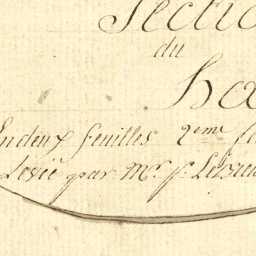 Sectio
du
Ha
En deux feuilles 2eme fe
Levée par Mr.